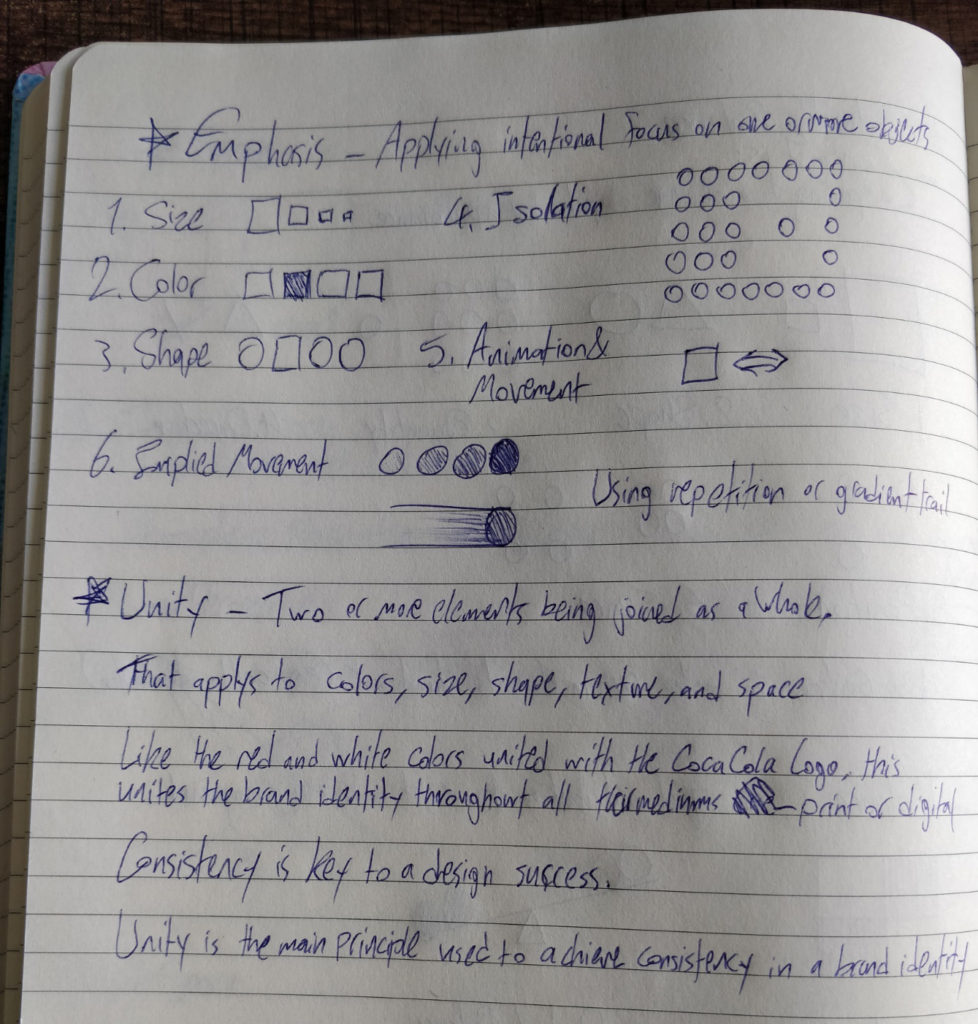 Emphasis - Applying intentional focus on one or more objects
1. Size
4. Isolation
2. Color
3. Shape
5. Animation &
Movement
6. Implied Movement
Using repetition or gradient trail
Unity - Two or more elements being joined as a whole.
That applys to colors, size, shape, texture, and space
Like the red and white colors united with the CocaCola Logo, this
unites the brand identity throughout all their mediums - print or digital
Consistency is key to a design success.
Unity is the main principle used to achieve consistency in a brand identity